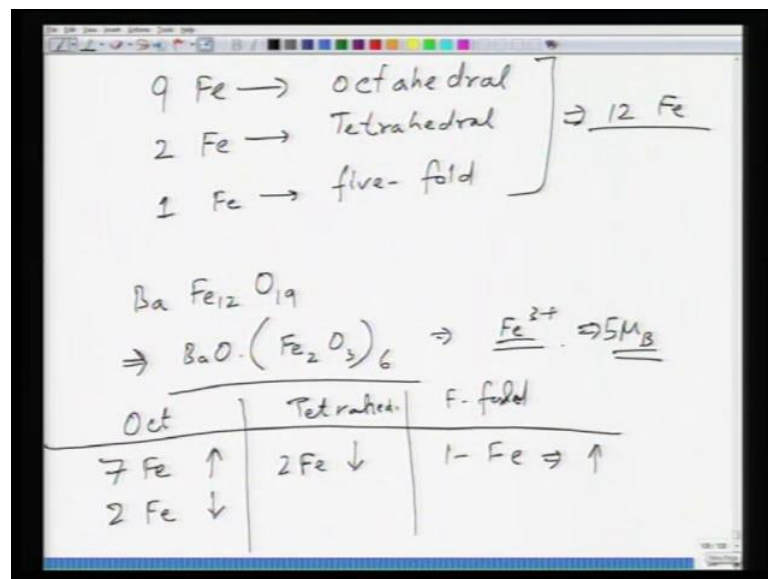 9 Fe → Octahedral
⇒ 12 Fe
2 Fe → Tetrahedral
1 Fe → five-fold
Ba Fe12 O19
⇒ BaO.(Fe2O3)6 ⇒ Fe3+. ⇒ 5μB
Oct Tetrahed. F-fold
7 Fe ↑ 2 Fe ↓ 1- Fe ⇒ ↑
2 Fe ↓